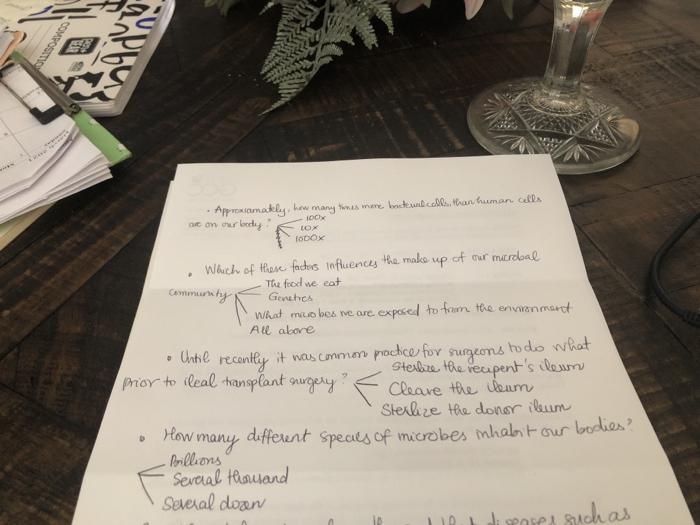 COMPOSITION
• Approxiamately, how many times more bacterial cells, than human cells
are on our body?
100x
10x
1000x
• Which of these factors influences the make up of our microbal
community
The food we eat
Genetics
What microbes we are exposed to from the environment
All above
• Until recently it was common practice for surgeons to do what
prior to ileal transplant surgery?
Sterilize the recipent's ileum
Cleave the ileum
Sterilize the donor ileum
• How many different species of microbes inhabit our bodies?
Billions
Several thousand
Several dozen
diseases such as